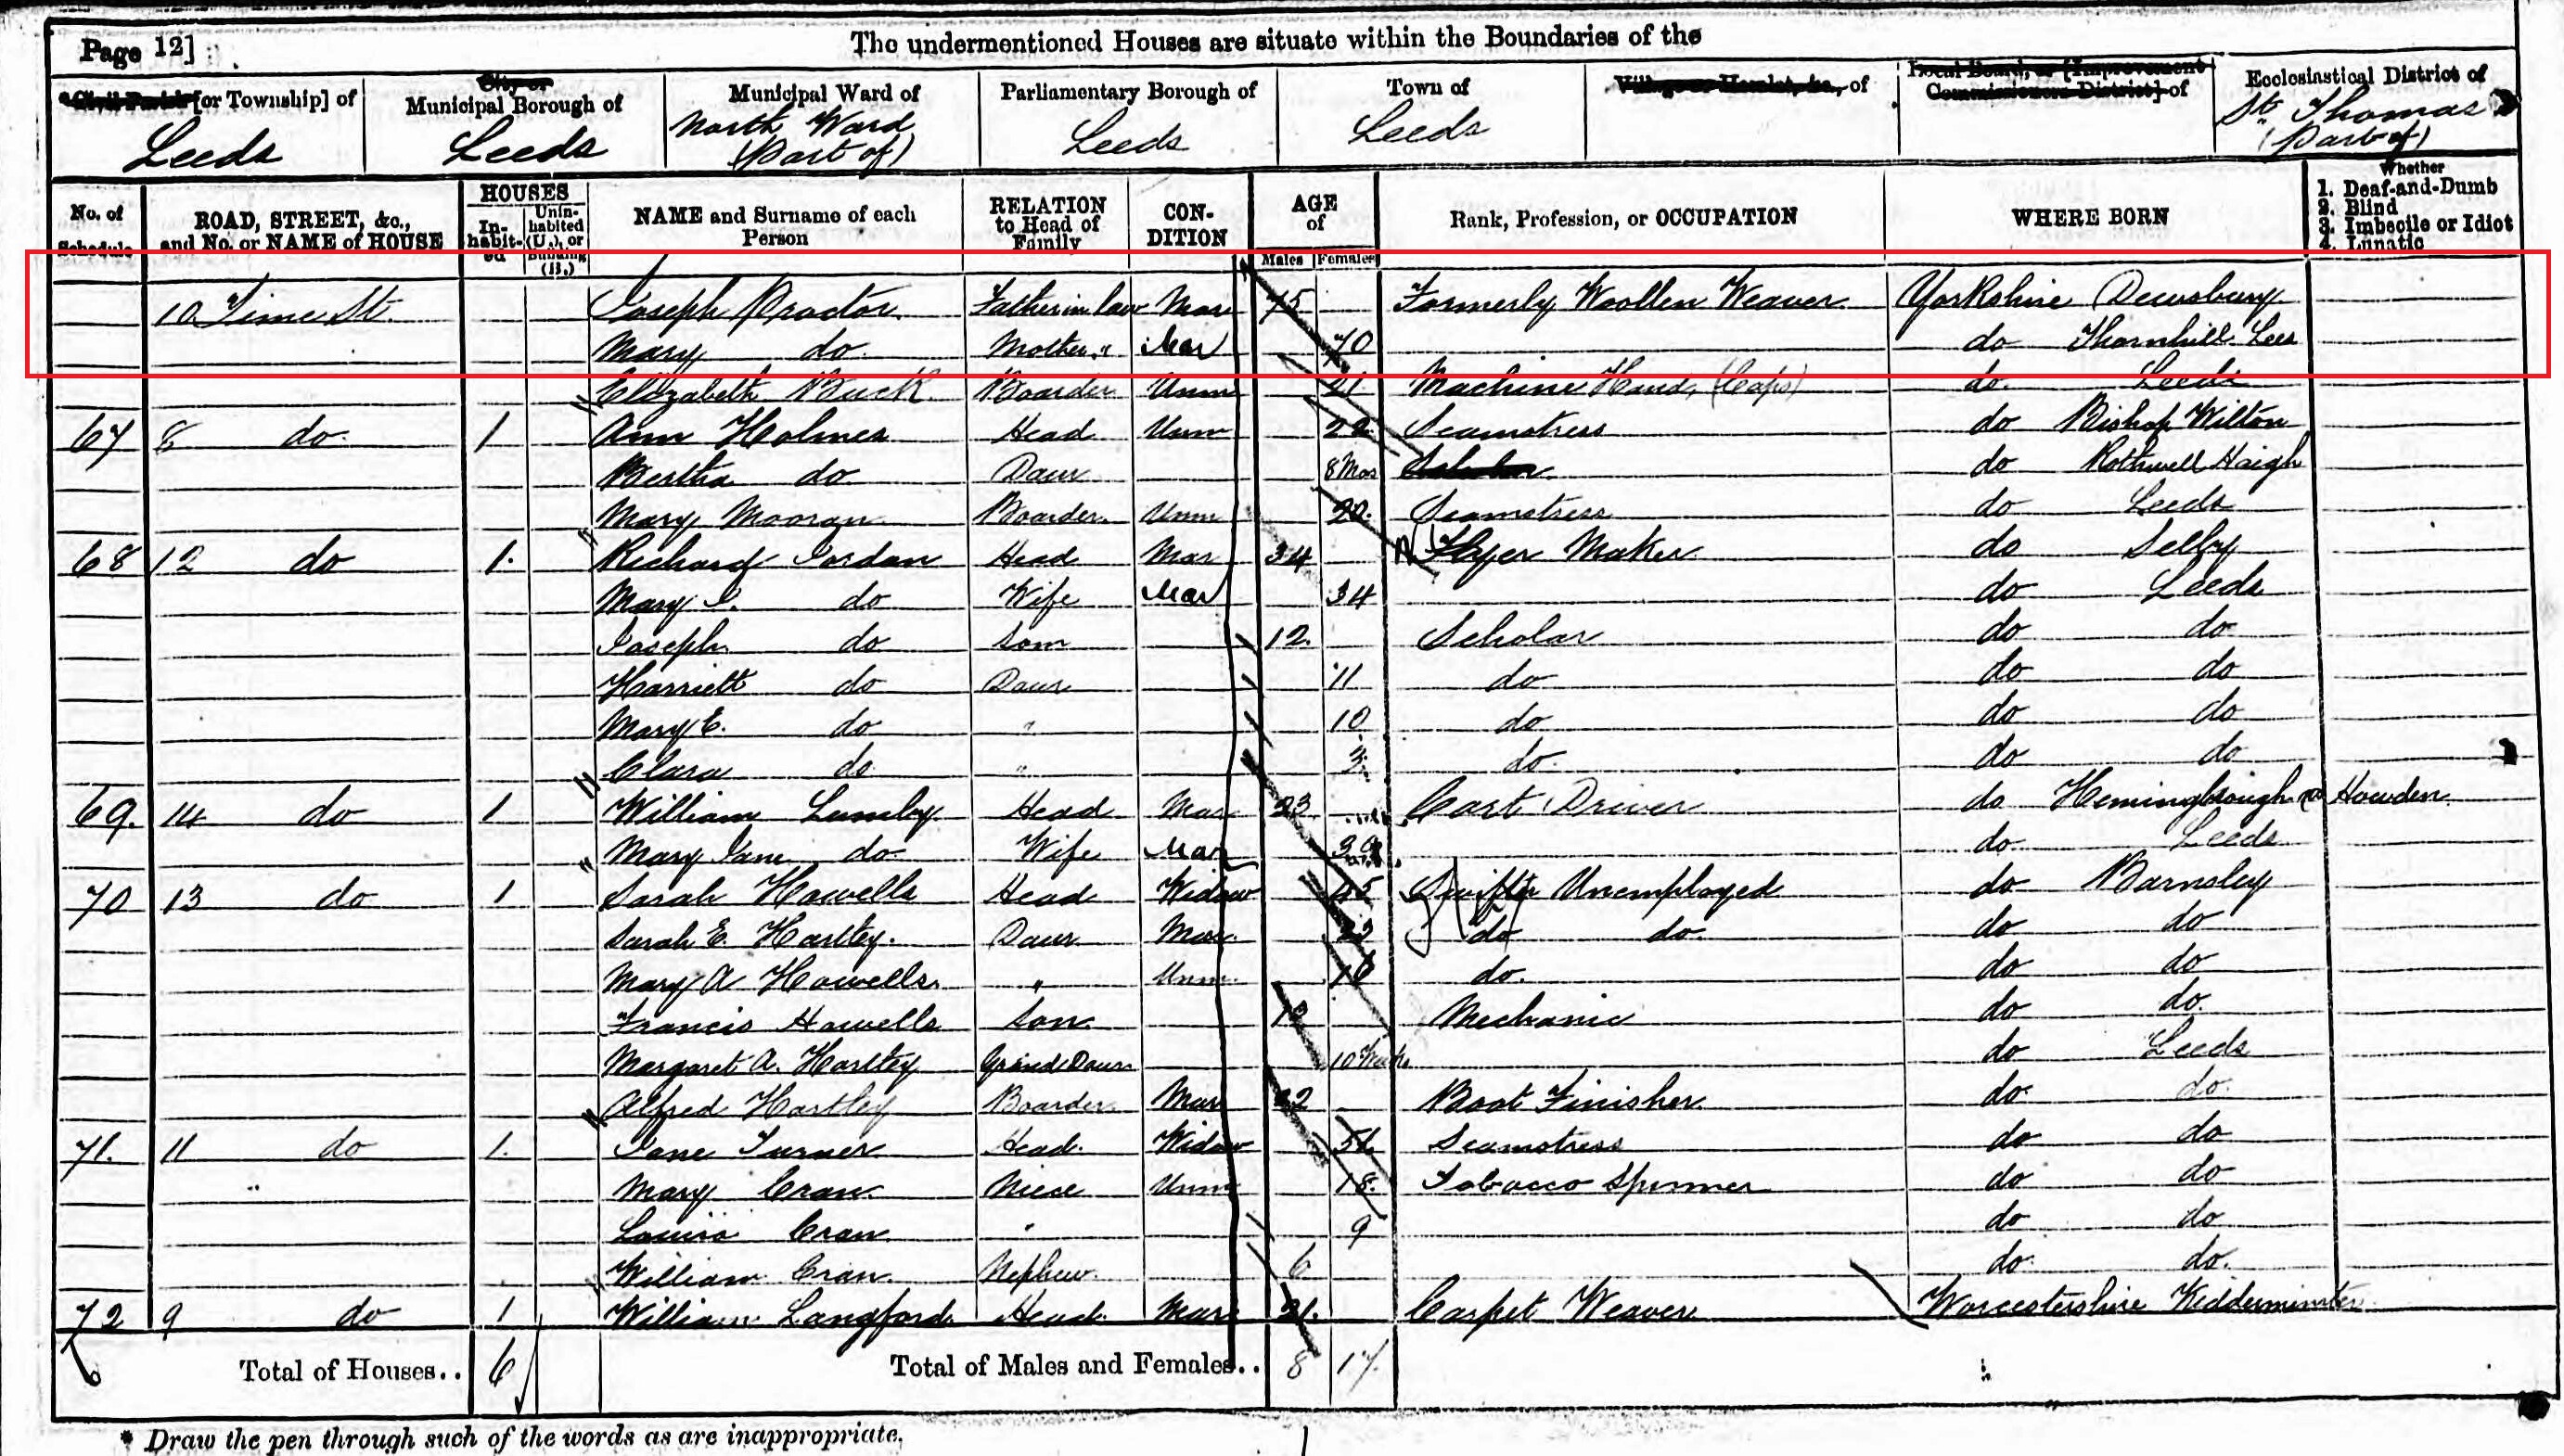 Page 12]
The undermentioned Houses are situate within the Boundaries of the
Civil Parish [or Township] of City or Municipal Borough of Municipal Ward of Parliamentary Borough of Town of Village or Hamlet, &c., of Local Board, or [Improvement Commissioners District] of Ecclesiastical District of
Leeds Leeds North Ward (Part of) Leeds Leeds St. Thomas (Part of)
No. of Schedule ROAD, STREET, &c., and No. or NAME of HOUSE HOUSES In-habit-ed Unin-habited (U.), or Building (B.) NAME and Surname of each Person RELATION to Head of Family CON-DITION AGE of Males Females Rank, Profession, or OCCUPATION WHERE BORN Whether 1. Deaf-and-Dumb 2. Blind 3. Imbecile or Idiot 4. Lunatic
10 St. Joseph Proctor Father in law Mar 75 Formerly Woollen Weaver Yorkshire Dewsbury
Mary do. Mother " Mar 70 do Thornhill Lees
Elizabeth Buck Boarder Unm 21 Machine Hand, (Caps) do. Leeds
67 8 do. 1 Ann Holmes Head Unm 22 Seamstress do Bishop Wilton
Bertha do Daur 8 Mos Scholar do Rothwell Haigh
Mary Boarder. Unm 20. Seamstress do Leeds
68 12 do 1. Richard Jordan Head Mar 34 Flyer Maker do Selby
Mary do Wife Mar 34 do Leeds
Joseph do Son 12. Scholar do do
Harriett do Daur 11 do do do
Mary E. do " 10 do do do
Clara do " 3 do. do do
69. 14 do 1 William Lumby Head Mar 23 Cart Driver do Hemingbrough Howden
Mary Jane do Wife Mar do Leeds
70 13 do 1 Sarah Howells Head Widow 45 Unemployed do Barnsley
Sarah E. Hartley. Daur Mar. 22 do do. do do
Mary A Howells. " Unm. do. do do
Francis Howells Son Mechanic do do.
Margaret A. Hartley Grand Daur 10 Weeks do Leeds
Alfred Hartley Boarder Mar 22 Boot Finisher do do.
71. 11 do 1. Jane Turner Head. Widow Seamstress do do
" Mary Cran Niece Unm 18. Tobacco Spinner do do
Louisa Cran " 9 do do
William Cran. Nephew. 6 do do.
72 9 do 1 William Langford Head. Mar 21. Carpet Weaver Worcestershire Kidderminster
Total of Houses.. 6 Total of Males and Females.. 8 17
* Draw the pen through such of the words as are inappropriate.